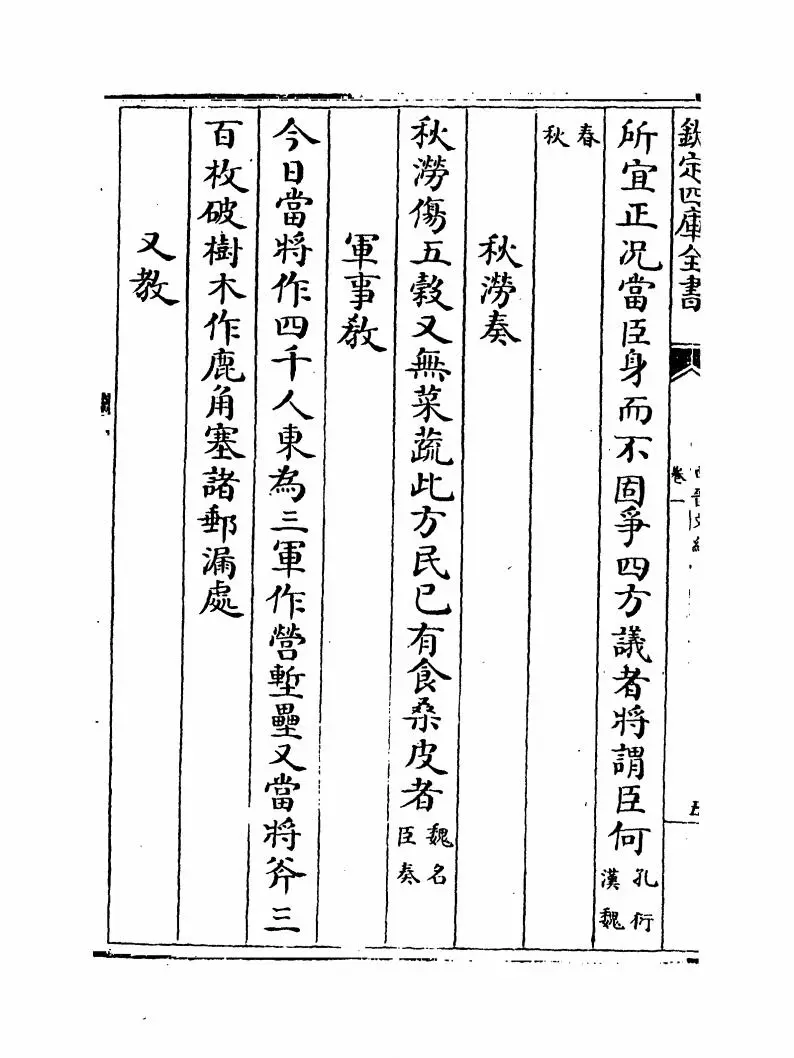 欽定四庫全書
卷一
所宜正况當臣身而不固爭四方議者將謂臣何孔衍漢魏
春秋
秋澇奏
秋澇傷五穀又無菜蔬此方民已有食桑皮者魏名臣奏
軍事教
今日當將作四千人東為三軍作營塹壘又當將斧三
百枚破樹木作鹿角塞諸郵漏處
又教